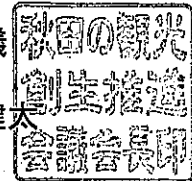 秋田の観光
創生推進
会議会長印
大